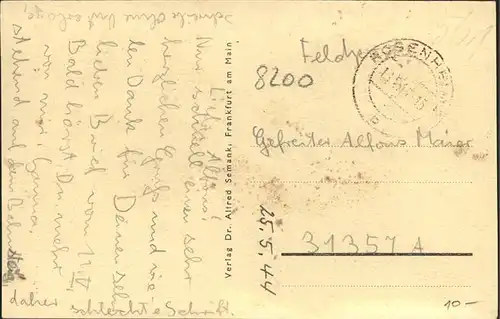 Lieber Alfons!
Nun schnell einen sehr
herzlichen Gruß und vie-
len Dank für Deinen sehr
lieben Brief vom 11. IV.
Bald hörst Du mehr
von mir.
stehend auf dem Bahnsteig
daher schlechte Schrift.
schreibe ohne
Verlag Dr. Alfred Semank, Frankfurt am Main
Feldpost
8200
ROSENHEIM
Gefreiter Alfons Maier
31357 A
25.5.44
10-